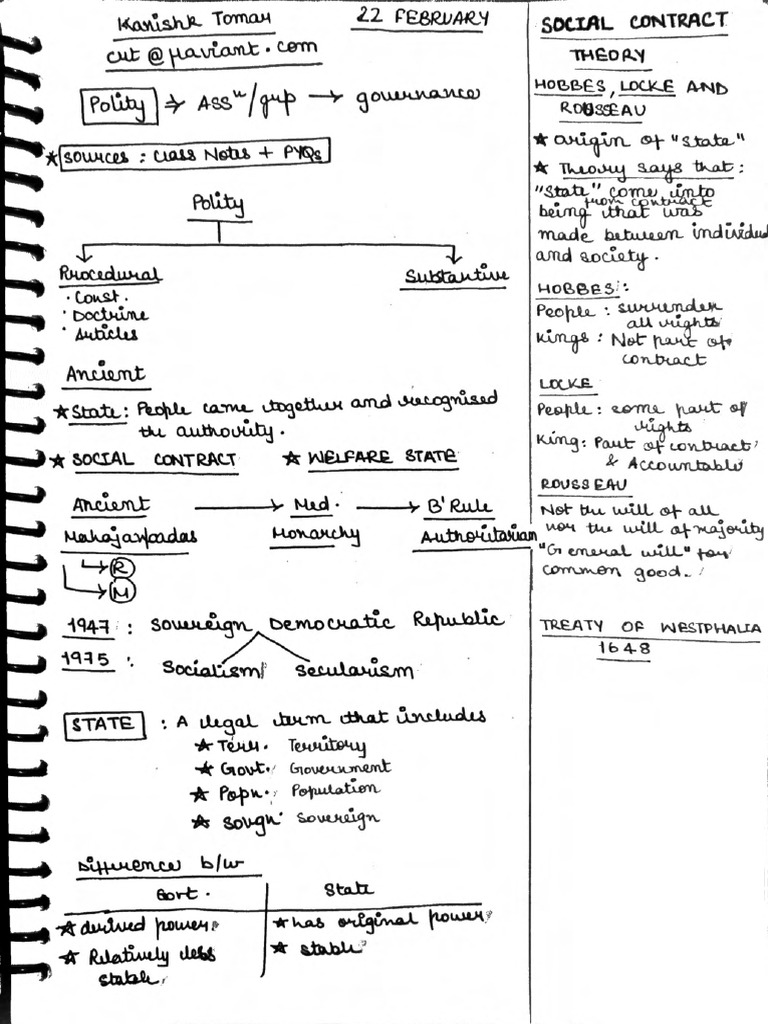 Kanishk Tomar
22 FEBRUARY
cut@raviant.com
Polity ⇒ Assⁿ/grp → governance
★ Sources : Class Notes + PYQs
Polity
Procedural
· Const.
· Doctrine
· Articles
Substantive
Ancient
★ State : People came together and recognised
the authority.
★ SOCIAL CONTRACT ★ WELFARE STATE
Ancient → Med. → B'Rule
Mahajanpadas Monarchy Authoritarian
R
M
1947 : Sovereign Democratic Republic
1975 : Socialism Secularism
STATE : A legal term that includes
★ Terr. Territory
★ Govt. Government
★ Popn. Population
★ Sovgn. Sovereign
Difference b/w
Govt. State
★ derived power. ★ has original power.
★ Relatively less ★ stable
stable.
SOCIAL CONTRACT
THEORY
HOBBES, LOCKE AND
ROUSSEAU
★ origin of "State"
★ Theory says that :
"State" come into
from contract
being that was
made between individual
and society.
HOBBES :
People : surrender
all rights
Kings : Not part of
contract
LOCKE
People : some part of
rights
King : Part of contract
& Accountable
ROUSSEAU
Not the will of all
nor the will of majority
"General will" for
common good.
TREATY OF WESTPHALIA
1648